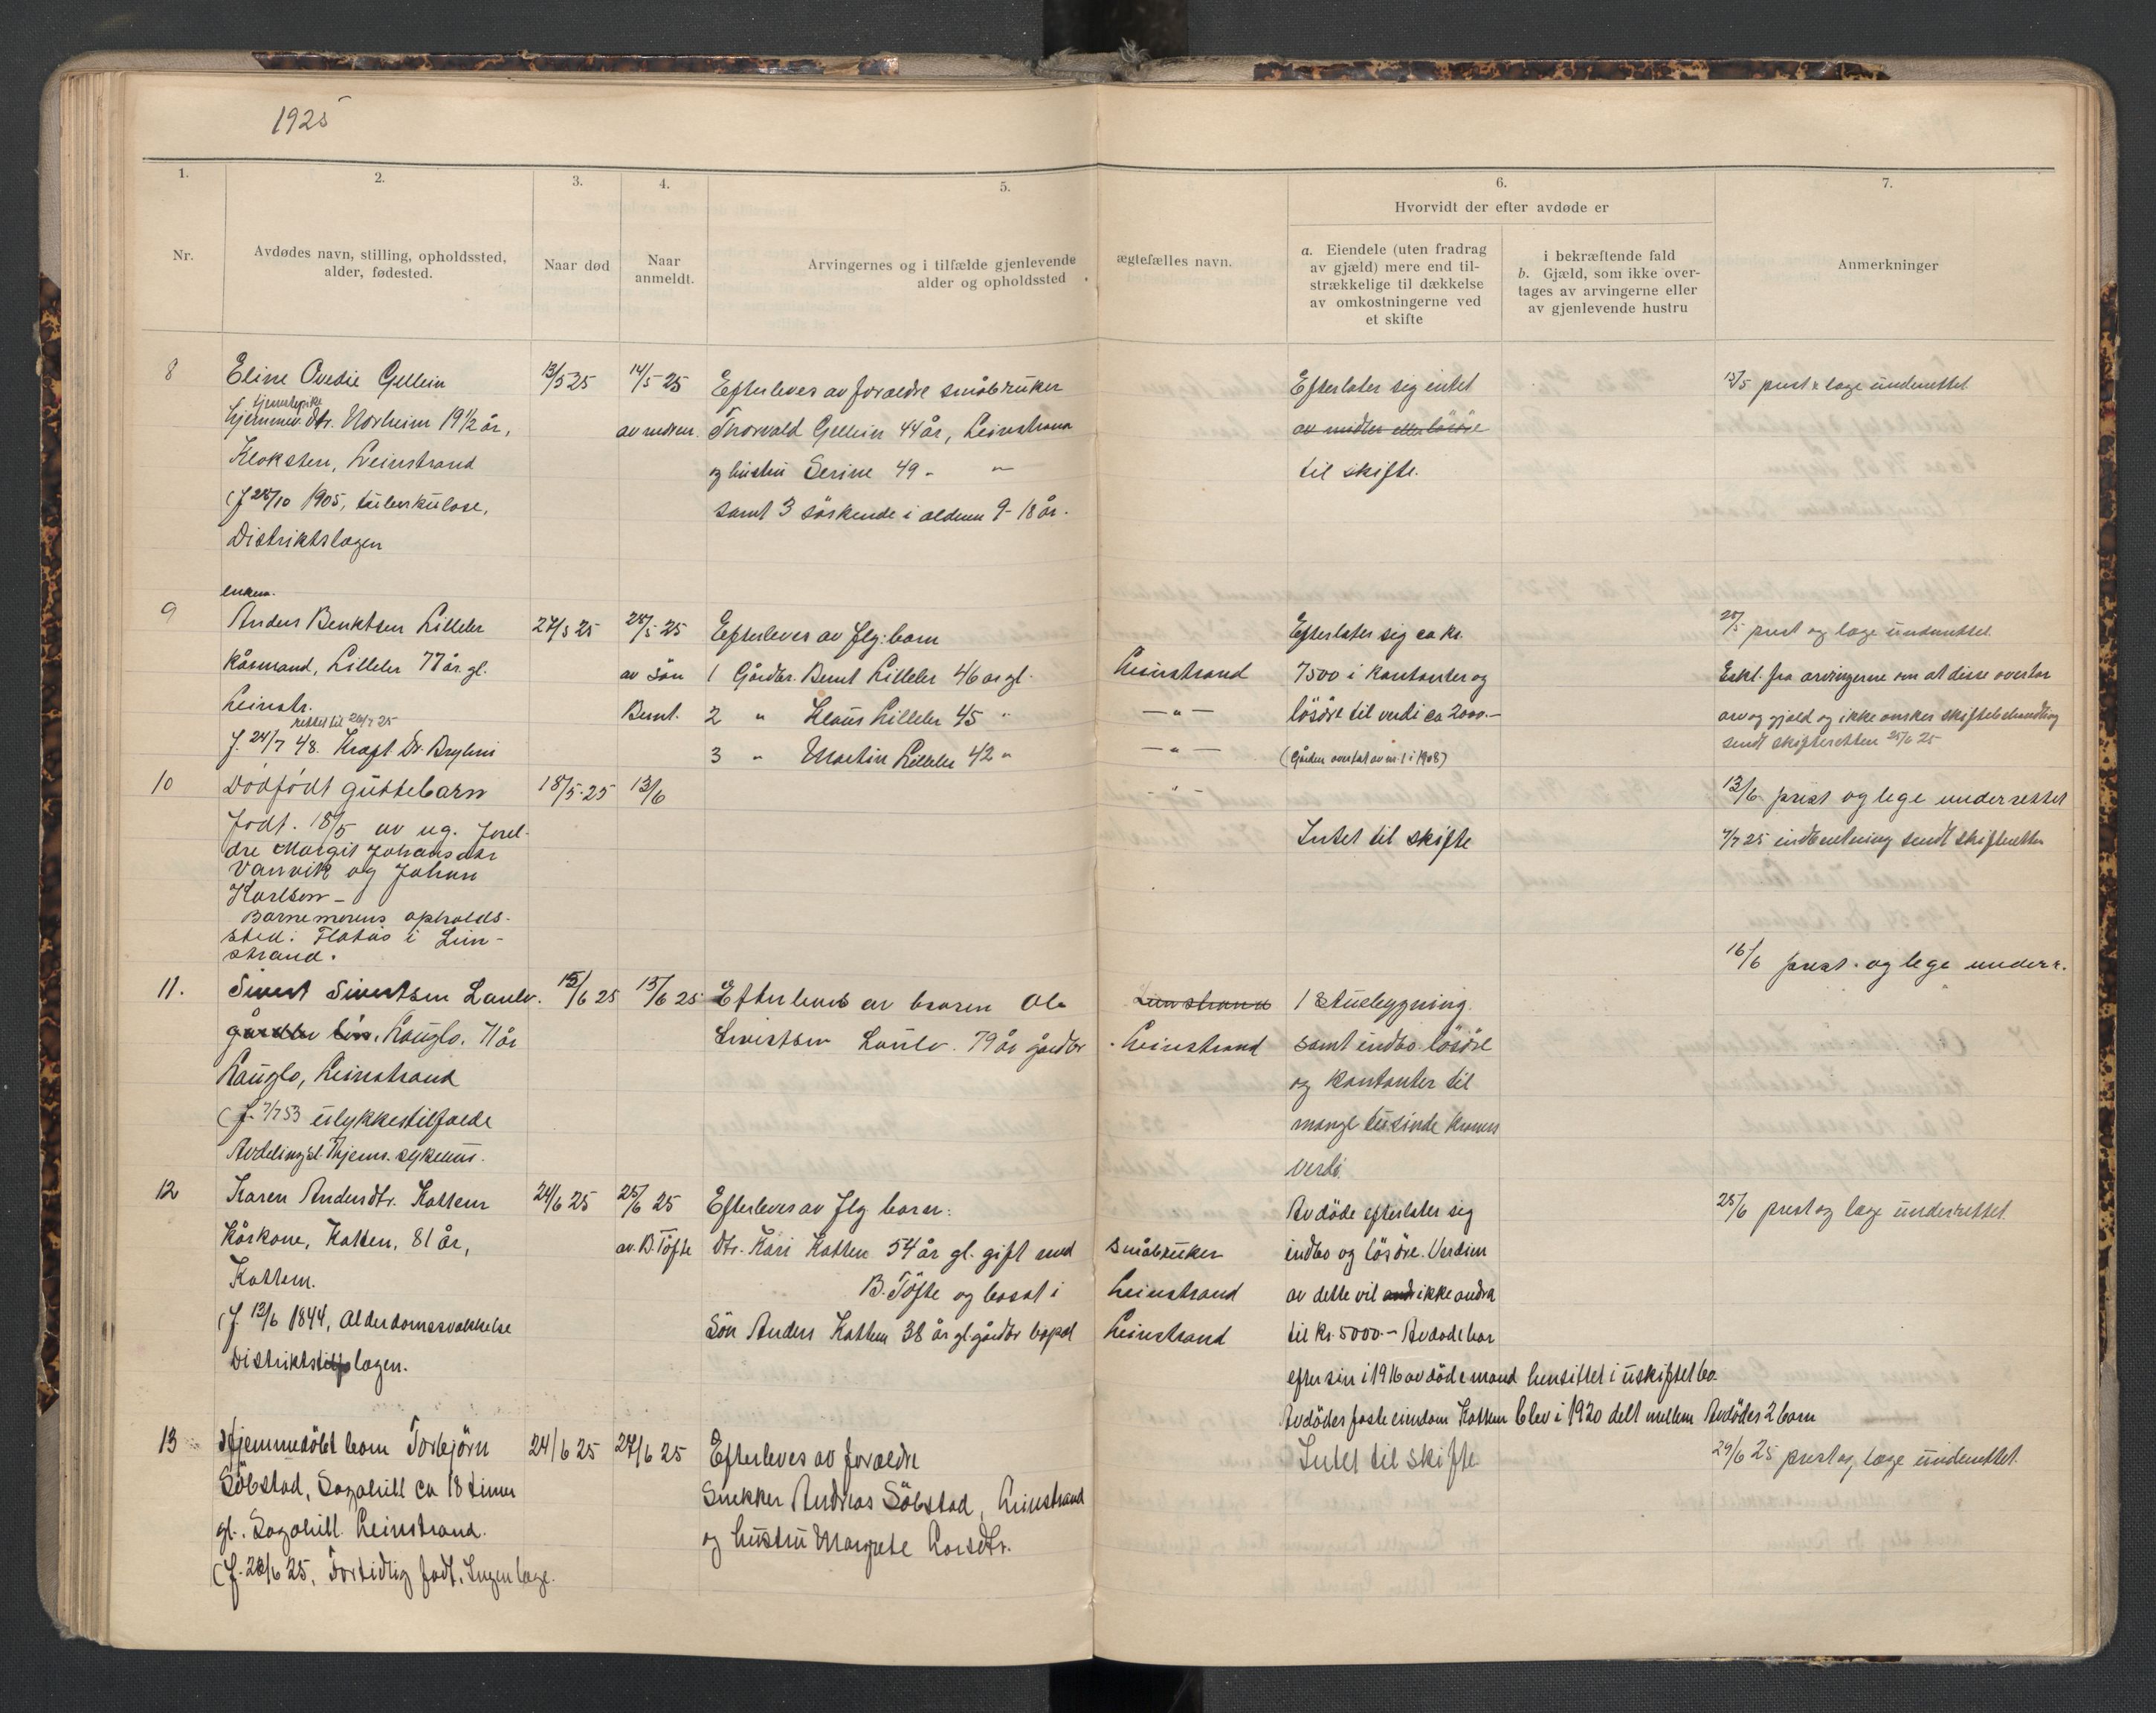 1925
1.
2.
3.
4.
5.
6.
7.
Hvorvidt der efter avdøde er
Nr.
Avdødes navn, stilling, opholdssted,
alder, fødested.
Naar død
Naar
anmeldt.
Arvingernes og i tilfælde gjenlevende
alder og opholdssted
ægtefælles navn.
a. Eiendele (uten fradrag
av gjæld) mere end til-
strækkelige til dækkelse
av omkostningerne ved
et skifte
i bekræftende fald
b. Gjæld, som ikke over-
tages av arvingerne eller
av gjenlevende hustru
Anmerkninger
8
Eline Ovedie Gellein
13/5 25
14/5 25
Efterleves av foraeldre småbruker
Efterlater sig intet
15/5 prest & læge underrettet
Hjemmev. dtr. Norheim 19 1/2 år,
Thorvald Gellein 44 år, Leinstrand
av midler eller lösöre
Kloksten, Leinstrand
og hustru Serine 49 - " -
til skifte.
(f 28/10 1905, tuberkulose,
samt 3 söskende i alderen 9-18 år.
Distriktslægen
enkem.
9
Anders Benktsen Lilleler
27/5 25
28/5 25
Efterleves av flg: barn
Efterlater sig ca kr.
28/5 prest og læge underrettet.
kårmand, Lilleler 77 år gl.
av sön
1 Gårdbr. Bernt Lilleler 46 år gl.
Leinstrand
7500 i kontanter og
Erkl. fra arvingerne om at disse overtar
Leinstr.
Bernt.
2 " Klaus Lilleler 45 "
- " -
lösöre til verdi ca 2000.-
arv og gjæld og ikke ønsker skiftebehandling
rettet til 26/7 25
f. 24/7 48. Kræft Dr. Bryhni
3 " Martin Lilleler 42 "
- " -
(Gården overtat av nr. 1 i 1908)
sendt skifteretten 25/6 25
10
Dödfödt guttebarn
18/5-25
13/6
- " -
13/6 prest og lege underrettet
födt. 18/5 av ug. forel-
Intet til skifte
7/7 25 indberetning sendt skifteretten
dre Margit Johansdtr
Vanvik og Johan
Karlsen -
Barnemorens opholds-
sted: Flatås i Lein-
strand.
16/6 prest. og lege underr.
11.
Sivert Sivertsen Laulo.
15/6 25
15/6 25
Efterleves av broren Ole
Leinstrand
1 Stuebygning
Lauglo. 71 år
Sivertsen Laulo. 79 år gårdbr
Leinstrand
samt indbo lösöre
Lauglo, Leinstrand
og kontanter til
(f. 7/7 53 ulykkestilfaelde
mange tusinde kroners
Avdelingsl. Thjems. sykehus.
verdi.
12
Karen Andersdtr. Kattem
24/6 25
25/6 25
Efterleves av flg barn:
Avdöde efterlater sig
25/6 prest og læge underrettet.
Kårkone, Kattem, 81 år,
av B. Töfte
dtr. Kari Kattem 54 år gl. gift med
småbruker
indbo og lösöre. Verdien
Kattem.
B. Töfte og bosat i
Leinstrand
av dette vil ikke andra
(f. 13/6 1844, Alderdomssvakkelse
Sön Anders Kattem 38 år gl. gårdbr bopel
Leinstrand
til kr. 5000.- Avdöde har
Distriktslægen.
efter sin i 1916 avdöde mand hensittet i uskiftet bo.
Avdödes faste eiendom Kattem blev i 1920 delt mellem Avdödes 2 barn
13
Hjemmedöbt barn Torbjörn
24/6 25
27/6 25
Efterleves av foraeldre
Intet til skifte
29/6 25 prest og læge underrettet.
Söbstad, Sagahill ca 18 timer
Snekker Andreas Söbstad, Leinstrand
gl. Sagahill. Leinstrand.
og hustru Margrete Larsdtr.
(f. 23/6 25, Fortidlig födt, Ingen læge.